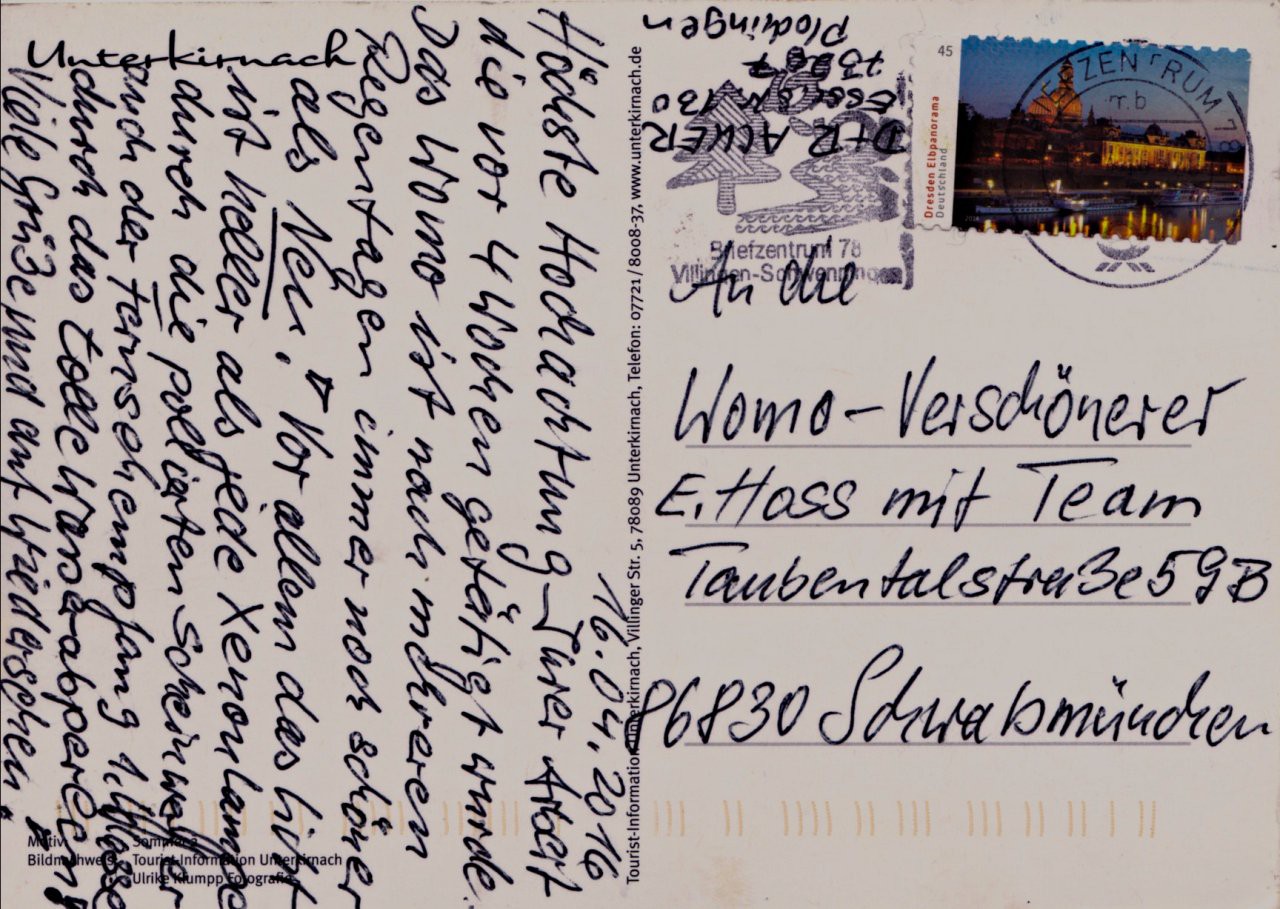 Unterkirnach
16.04.2016
Höchste Hochachtung – Eurer Arbeit
die vor 4 Wochen getätigt wurde.
Das Womo ist nach mehreren
Regentagen immer noch schöner
als Neu. Vor allem das Licht
ist heller als jede Xenonlampe
durch die polierten Scheinwerfer
auch der Fernsehempfang
durch das tolle Wasserabperlen!
Viele Grüße und auf Wiedersehen.
Motiv:
Bildnachweis: Tourist-Information Unterkirnach
Ulrike Klumpp Fotografie
Tourist-Information Unterkirnach, Villinger Str. 5, 78089 Unterkirnach, Telefon: 07721 / 8008-37, www.unterkirnach.de
D+R ACKER
130
Plochingen
Briefzentrum 78
Villingen-Schwenningen
45
Dresden Elbpanorama
Deutschland
BRIEFZENTRUM 78
An die
Womo-Verschönerer
E. Hoss mit Team
Taubentalstraße 59B
86830 Schwabmünchen